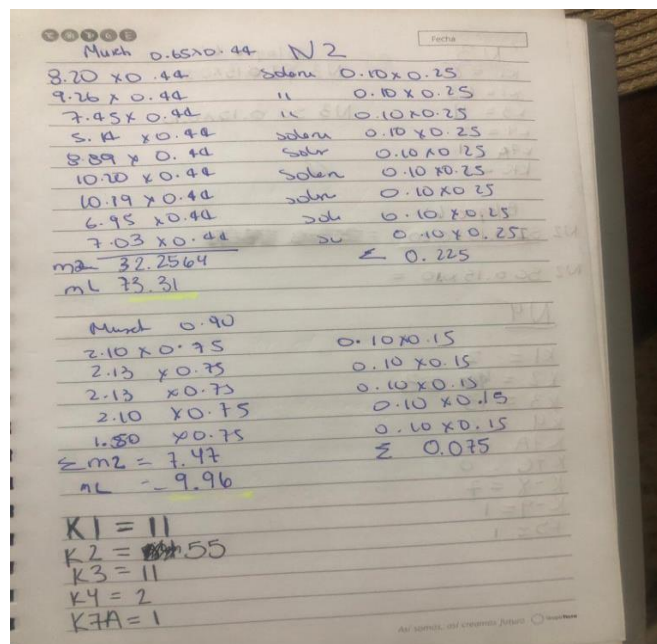 Fecha
Much 0.65x0.44 N2
8.20 x 0.44 Solera 0.10x0.25
9.26 x 0.44 " 0.10x0.25
7.45x 0.44 " 0.10x0.25
5.14 x0.44 solera 0.10x0.25
8.89 x 0.44 Soler 0.10x0.25
10.20 x0.44 Soler 0.10x0.25
10.19 x0.44 soler 0.10x0.25
6.95 x0.44 sole 0.10x0.25
7.03 x0.44 so 0.10x0.25
m2 32.2564 Σ 0.225
mL 73.31
Much 0.90
2.10 x 0.75 0.10x0.15
2.13 x0.75 0.10x0.15
2.13 x0.75 0.10x0.15
2.10 x0.75 0.10x0.15
1.50 x0.75 0.10x0.15
Σm2 = 7.47 Σ 0.075
mL = 9.96
K1 = 11
K2 = 55
K3 = 11
K4 = 2
K7A = 1
Así somos, así creamos futuro